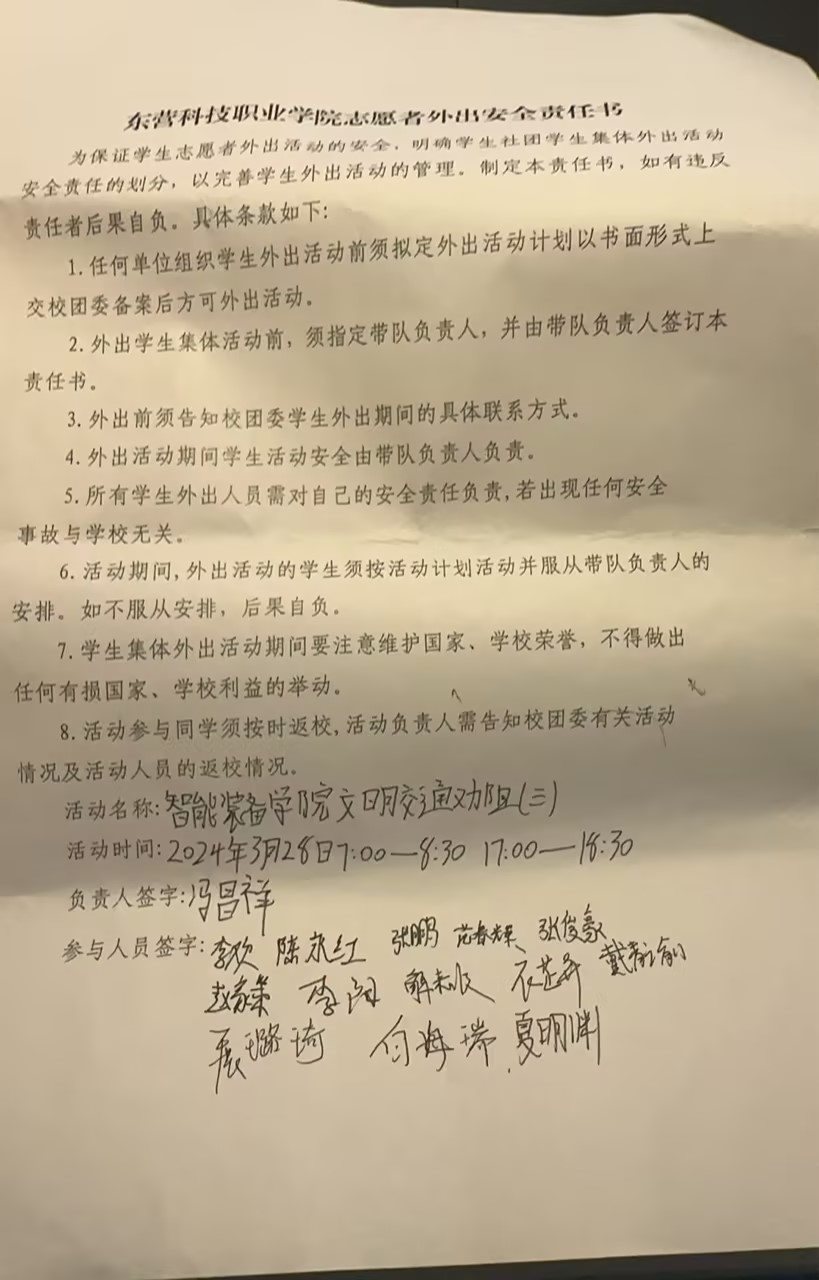 东营科技职业学院志愿者外出安全责任书
为保证学生志愿者外出活动的安全，明确学生社团学生集体外出活动
安全责任的划分，以完善学生外出活动的管理。制定本责任书，如有违反
责任者后果自负。具体条款如下:
1.任何单位组织学生外出活动前须拟定外出活动计划以书面形式上
交校团委备案后方可外出活动。
2.外出学生集体活动前，须指定带队负责人，并由带队负责人签订本
责任书。
3.外出前须告知校团委学生外出期间的具体联系方式。
4.外出活动期间学生活动安全由带队负责人负责。
5.所有学生外出人员需对自己的安全责任负责,若出现任何安全
事故与学校无关。
6.活动期间,外出活动的学生须按活动计划活动并服从带队负责人的
安排。如不服从安排，后果自负。
7.学生集体外出活动期间要注意维护国家、学校荣誉，不得做出
任何有损国家、学校利益的举动。
8.活动参与同学须按时返校,活动负责人需告知校团委有关活动
情况及活动人员的返校情况。
活动名称:智能装备学院文明交通劝阻(三)
活动时间:2024年3月28日7:00—8:30 17:00—18:30
负责人签字:冯昌祥
参与人员签字:李欢 陈永红 张鹏 范春辉 张俊豪
赵家荣 李闯
展璐琦 付海瑞 夏明渊